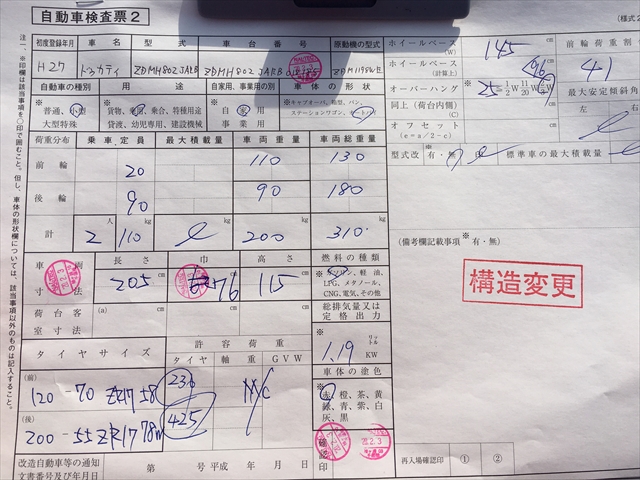 自動車検査票2
(様式2
初度登録年月 車名 型式 車台番号 原動機の型式
H27 ドゥカティ ZDMH802JARB ZDMH802JARB
ホイールベース(W) 145 cm
ホイールベース(計算上) cm
前輪荷重割合 41
オーバーハング 25 cm
最大安定傾斜角
自動車の種別 用途 自家用、事業用の別 車体の形状
※普通、小型 大型特殊
※貨物、乗用、乗合、特種用途 貸渡、幼児専用、建設機械
※自家用 事業用
※キャブオーバ、箱型、バン、ステーションワゴン、オートバイ
同上(荷台内側)(C) cm
左 右
オフセット (e=a/2-c) cm
型式改 有・無
標準車の最大積載量
荷重分布 乗車定員 最大積載量 車両重量 車両総重量
前輪 20 110 130
後輪 90 90 180
計 2人 110kg kg 200kg 310kg
(備考欄記載事項 ※有・無)
構造変更
車両寸法 長さ 巾 高さ 燃料の種類
205cm 76cm 115cm
※ガソリン、軽油、LPG、メタノール、CNG、電気、その他
荷台客室寸法 (a) cm cm cm
総排気量又は定格出力
※ 1.19 リットル KW
タイヤサイズ 許容荷重
タイヤ 軸重 GVW
(前) 120-70 ZR17 58 236 M/C
(後) 200-55ZR17 78W 425
車体の塗色
※赤、橙、茶、黄、緑、青、紫、白、灰、黒
確認印
改造自動車等の通知文書番号及び年月日 第 号 平成 年 月 日
再入場確認印 ① ②
注一、※印欄は該当事項を○印で囲むこと。但し、車体の形状欄については、該当事項以外のものは記入すること。